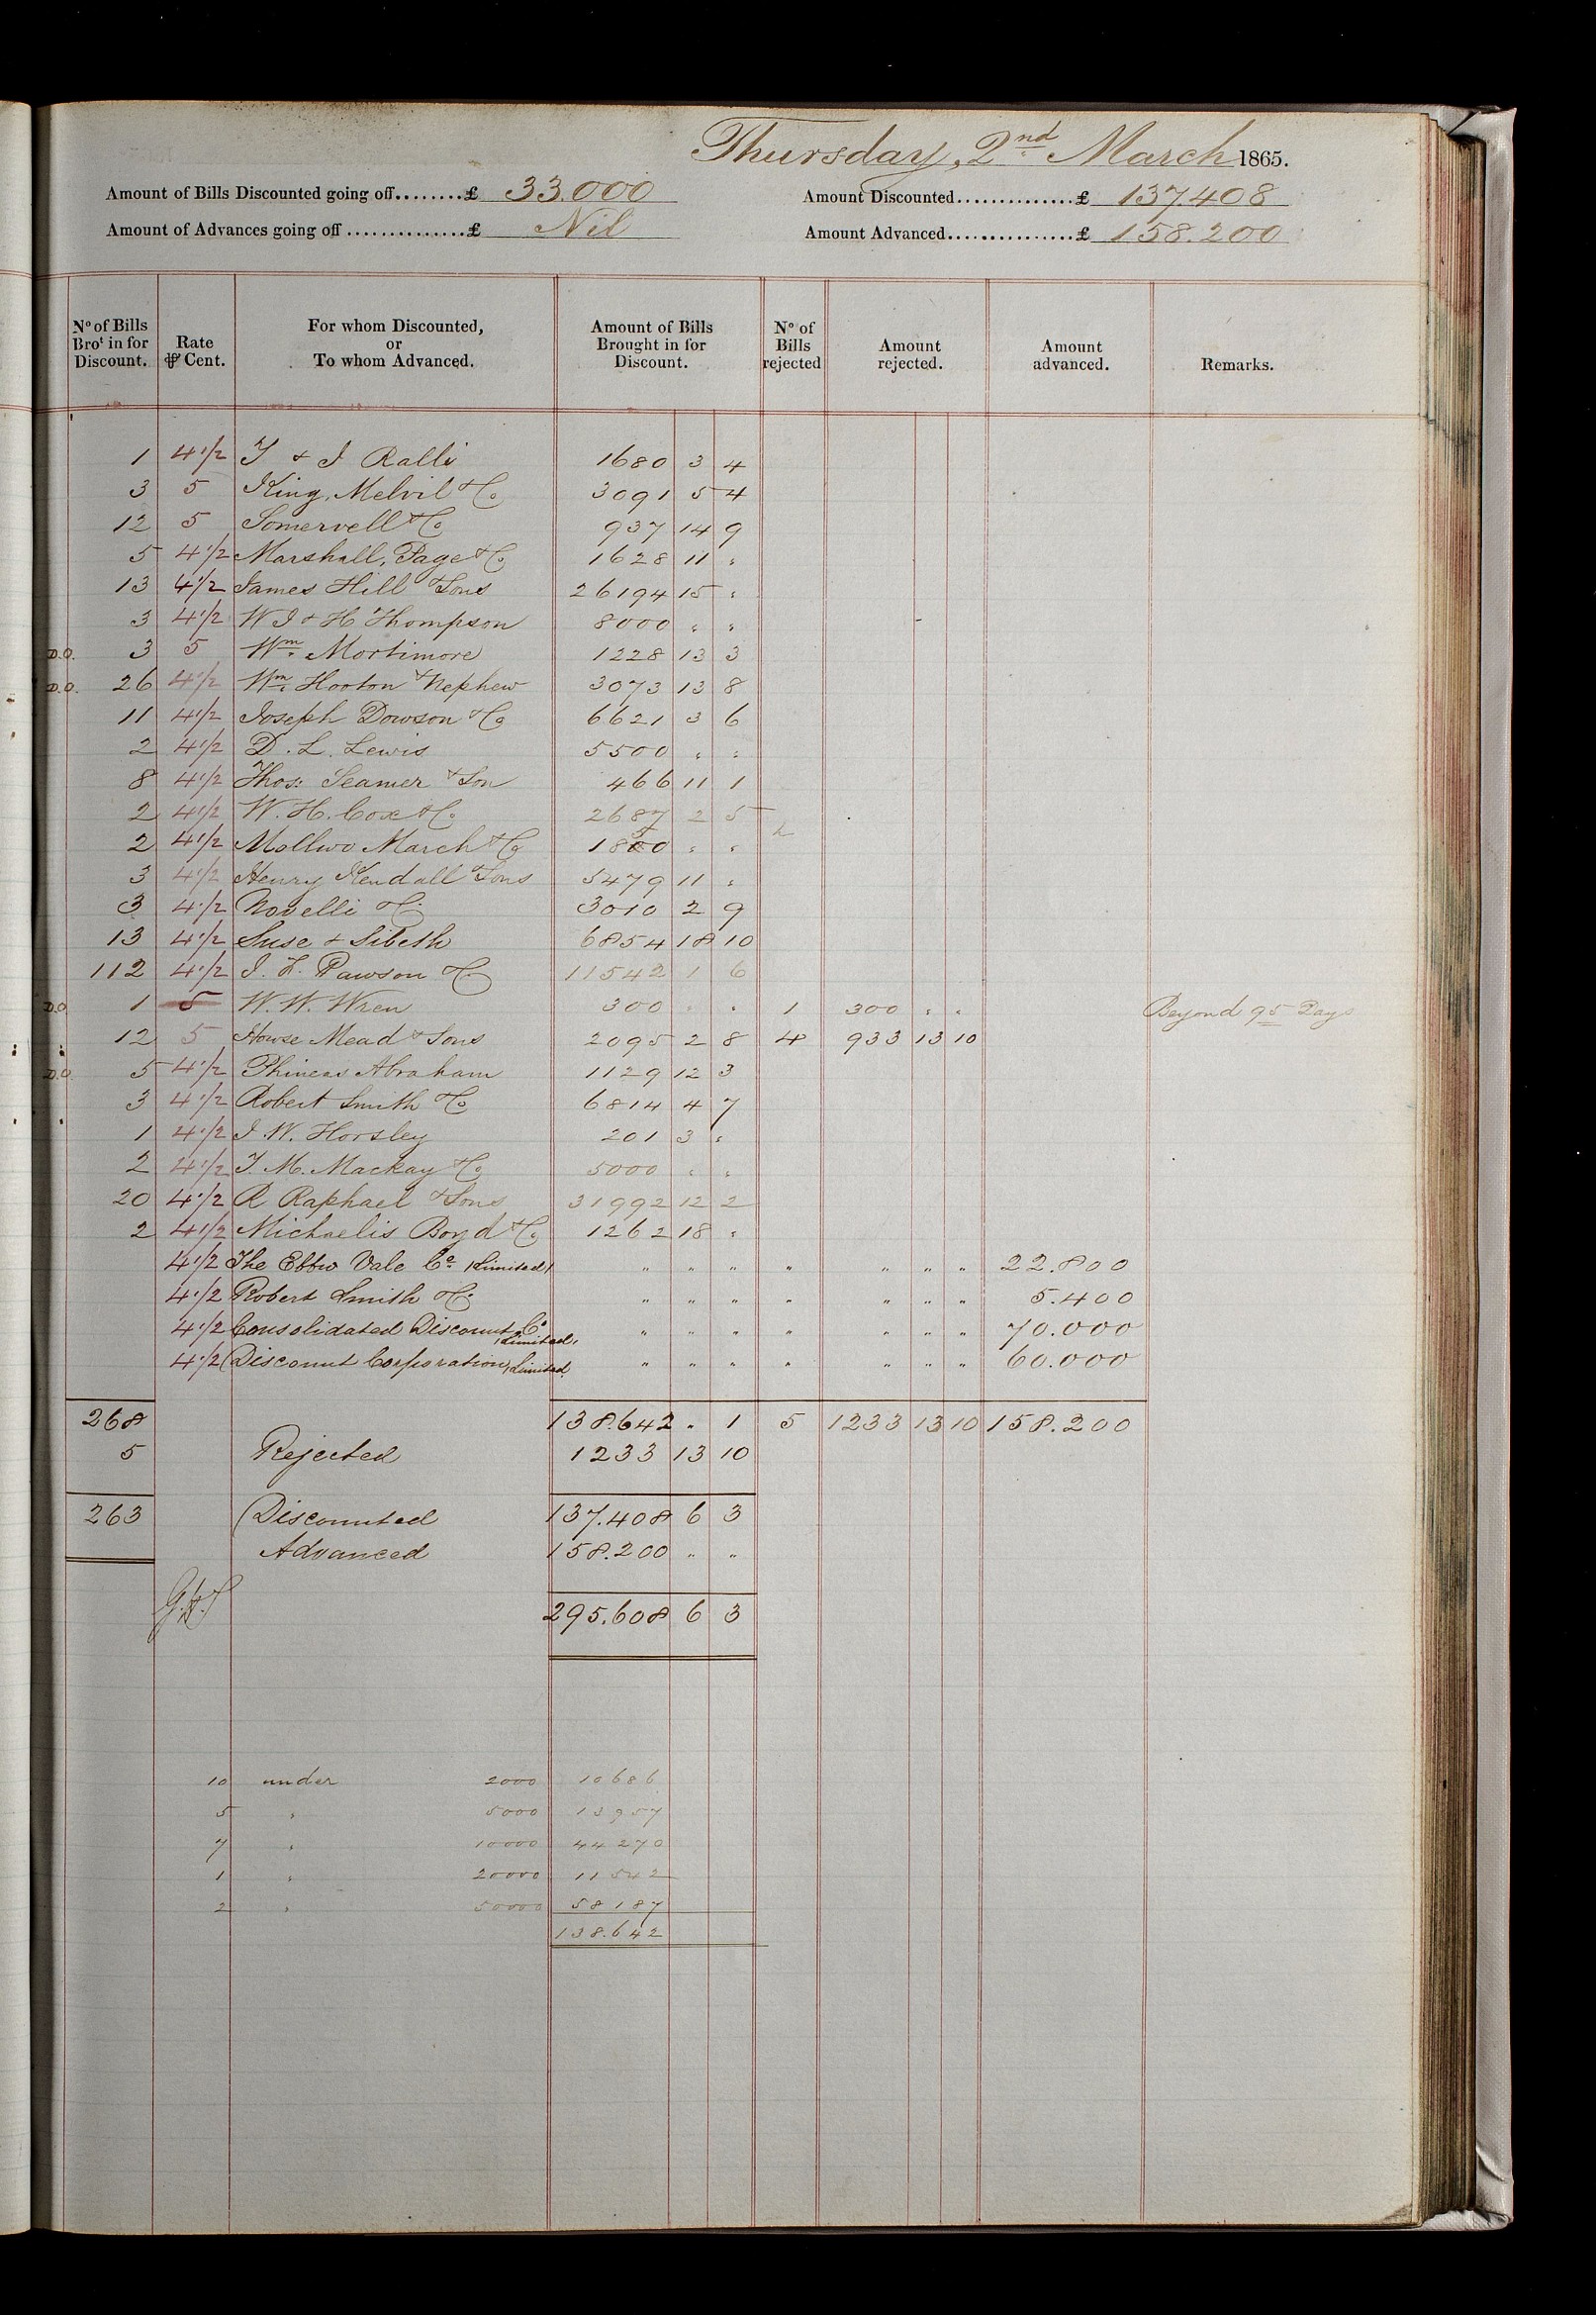 Thursday, 2nd March 1865.
Amount of Bills Discounted going off........£ 33.000 Amount Discounted..............£ 137,408
Amount of Advances going off..............£ Nil Amount Advanced...............£ 158.200
No of Bills Brot in for Discount. Rate ⅌ Cent. For whom Discounted, or To whom Advanced. Amount of Bills Brought in for Discount. No of Bills rejected Amount rejected. Amount advanced. Remarks.
1 4½ T & J Ralli 1680 3 4
3 5 King, Melvil & Co 3091 5 4
12 5 Somervell & Co 937 14 9
5 4½ Marshall, Page & Co 1628 11 "
13 4½ James Hill & Sons 26194 15 "
3 4½ W J & H Thompson 8000 " "
D.O. 3 5 Wm Mortimore 1228 13 3
D.O. 26 4½ Wm Hooton & Nephew 3073 13 8
11 4½ Joseph Dowson & Co 6621 3 6
2 4½ D. L. Lewis 5500 " "
8 4½ Thos: Seamer & Son 466 11 1
2 4½ W. H. Cox & Co 2687 2 5
2 4½ Mollwo March & Co 1850 " "
3 4½ Henry Kendall & Sons 5479 11 "
3 4½ Novelli & Co 3010 2 9
13 4½ Suse & Sibeth 6854 18 10
112 4½ J. F. Pawson & Co 11542 1 6
D.O. 1 5 W. W. Wren 300 " " 1 300 " " Beyond 95 Days
12 5 Howse Mead & Sons 2095 2 8 4 933 13 10
D.O. 5 4½ Phineas Abraham 1129 12 3
3 4½ Robert Smith & Co 6814 4 7
1 4½ J. W. Horsley 201 3 "
2 4½ T. M. Mackay & Co 5000 " "
20 4½ R Raphael & Sons 31992 12 2
2 4½ Michaelis Boyd & Co 1262 18 "
4½ The Ebbw Vale Co (Limited) " " " " " " " 22.800
4½ Robert Smith & Co " " " " " " " 5.400
4½ Consolidated Discount Co (Limited) " " " " " " " 70.000
4½ Discount Corporation (Limited) " " " " " " " 60.000
268 138.642 " 1 5 1233 13 10 158.200
5 Rejected 1233 13 10
263 Discounted 137.408 6 3
Advanced 158.200 " "
295.608 6 3
10 under 2000 10686
5 " 5000 13957
7 " 10000 44270
1 " 20000 11542
2 " 50000 58187
138.642